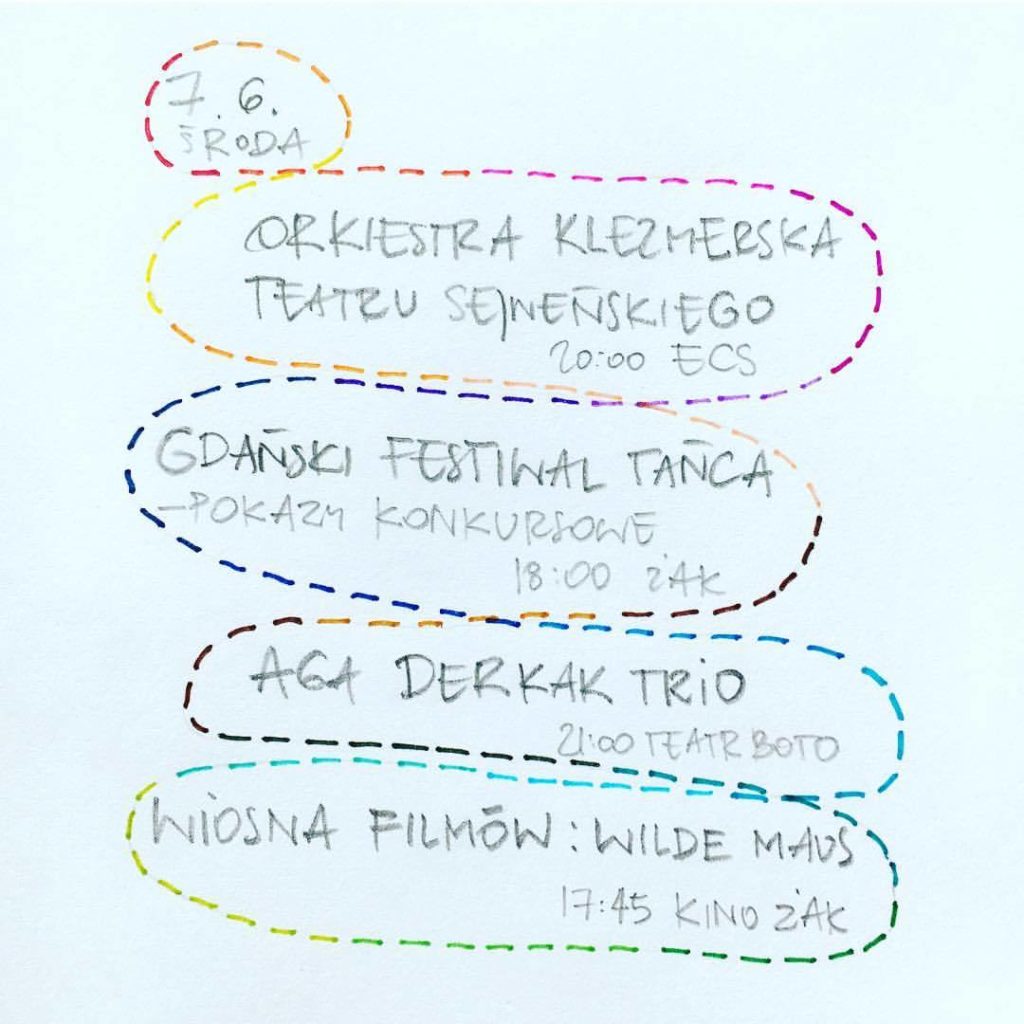 7. 6.
ŚRODA
ORKIESTRA KLEZMERSKA
TEATRU SEJNEŃSKIEGO
20:00 ECS
GDAŃSKI FESTIWAL TAŃCA
–POKAZY KONKURSOWE
18:00 ŻAK
AGA DERKAK TRiO
21:00 TEATR BOTO
WiOSNA FILMÓW: WILDE MAUS
17:45 KINO ŻAK